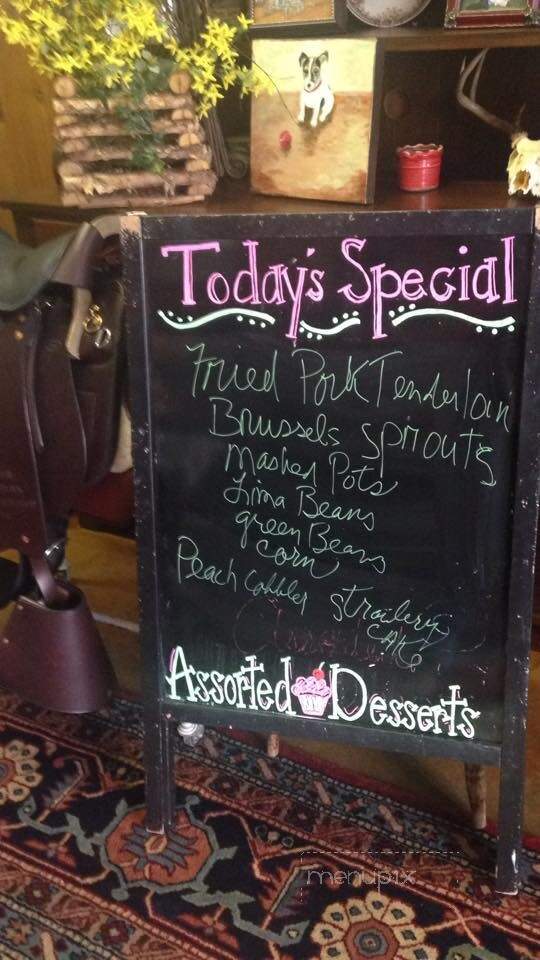 Today's Special
Fried Pork Tenderloin
Brussels Sprouts
Mashed Pots
Lima Beans
green Beans
corn
Peach Cobbler strawberry
CAKe
Assorted Desserts
menupix